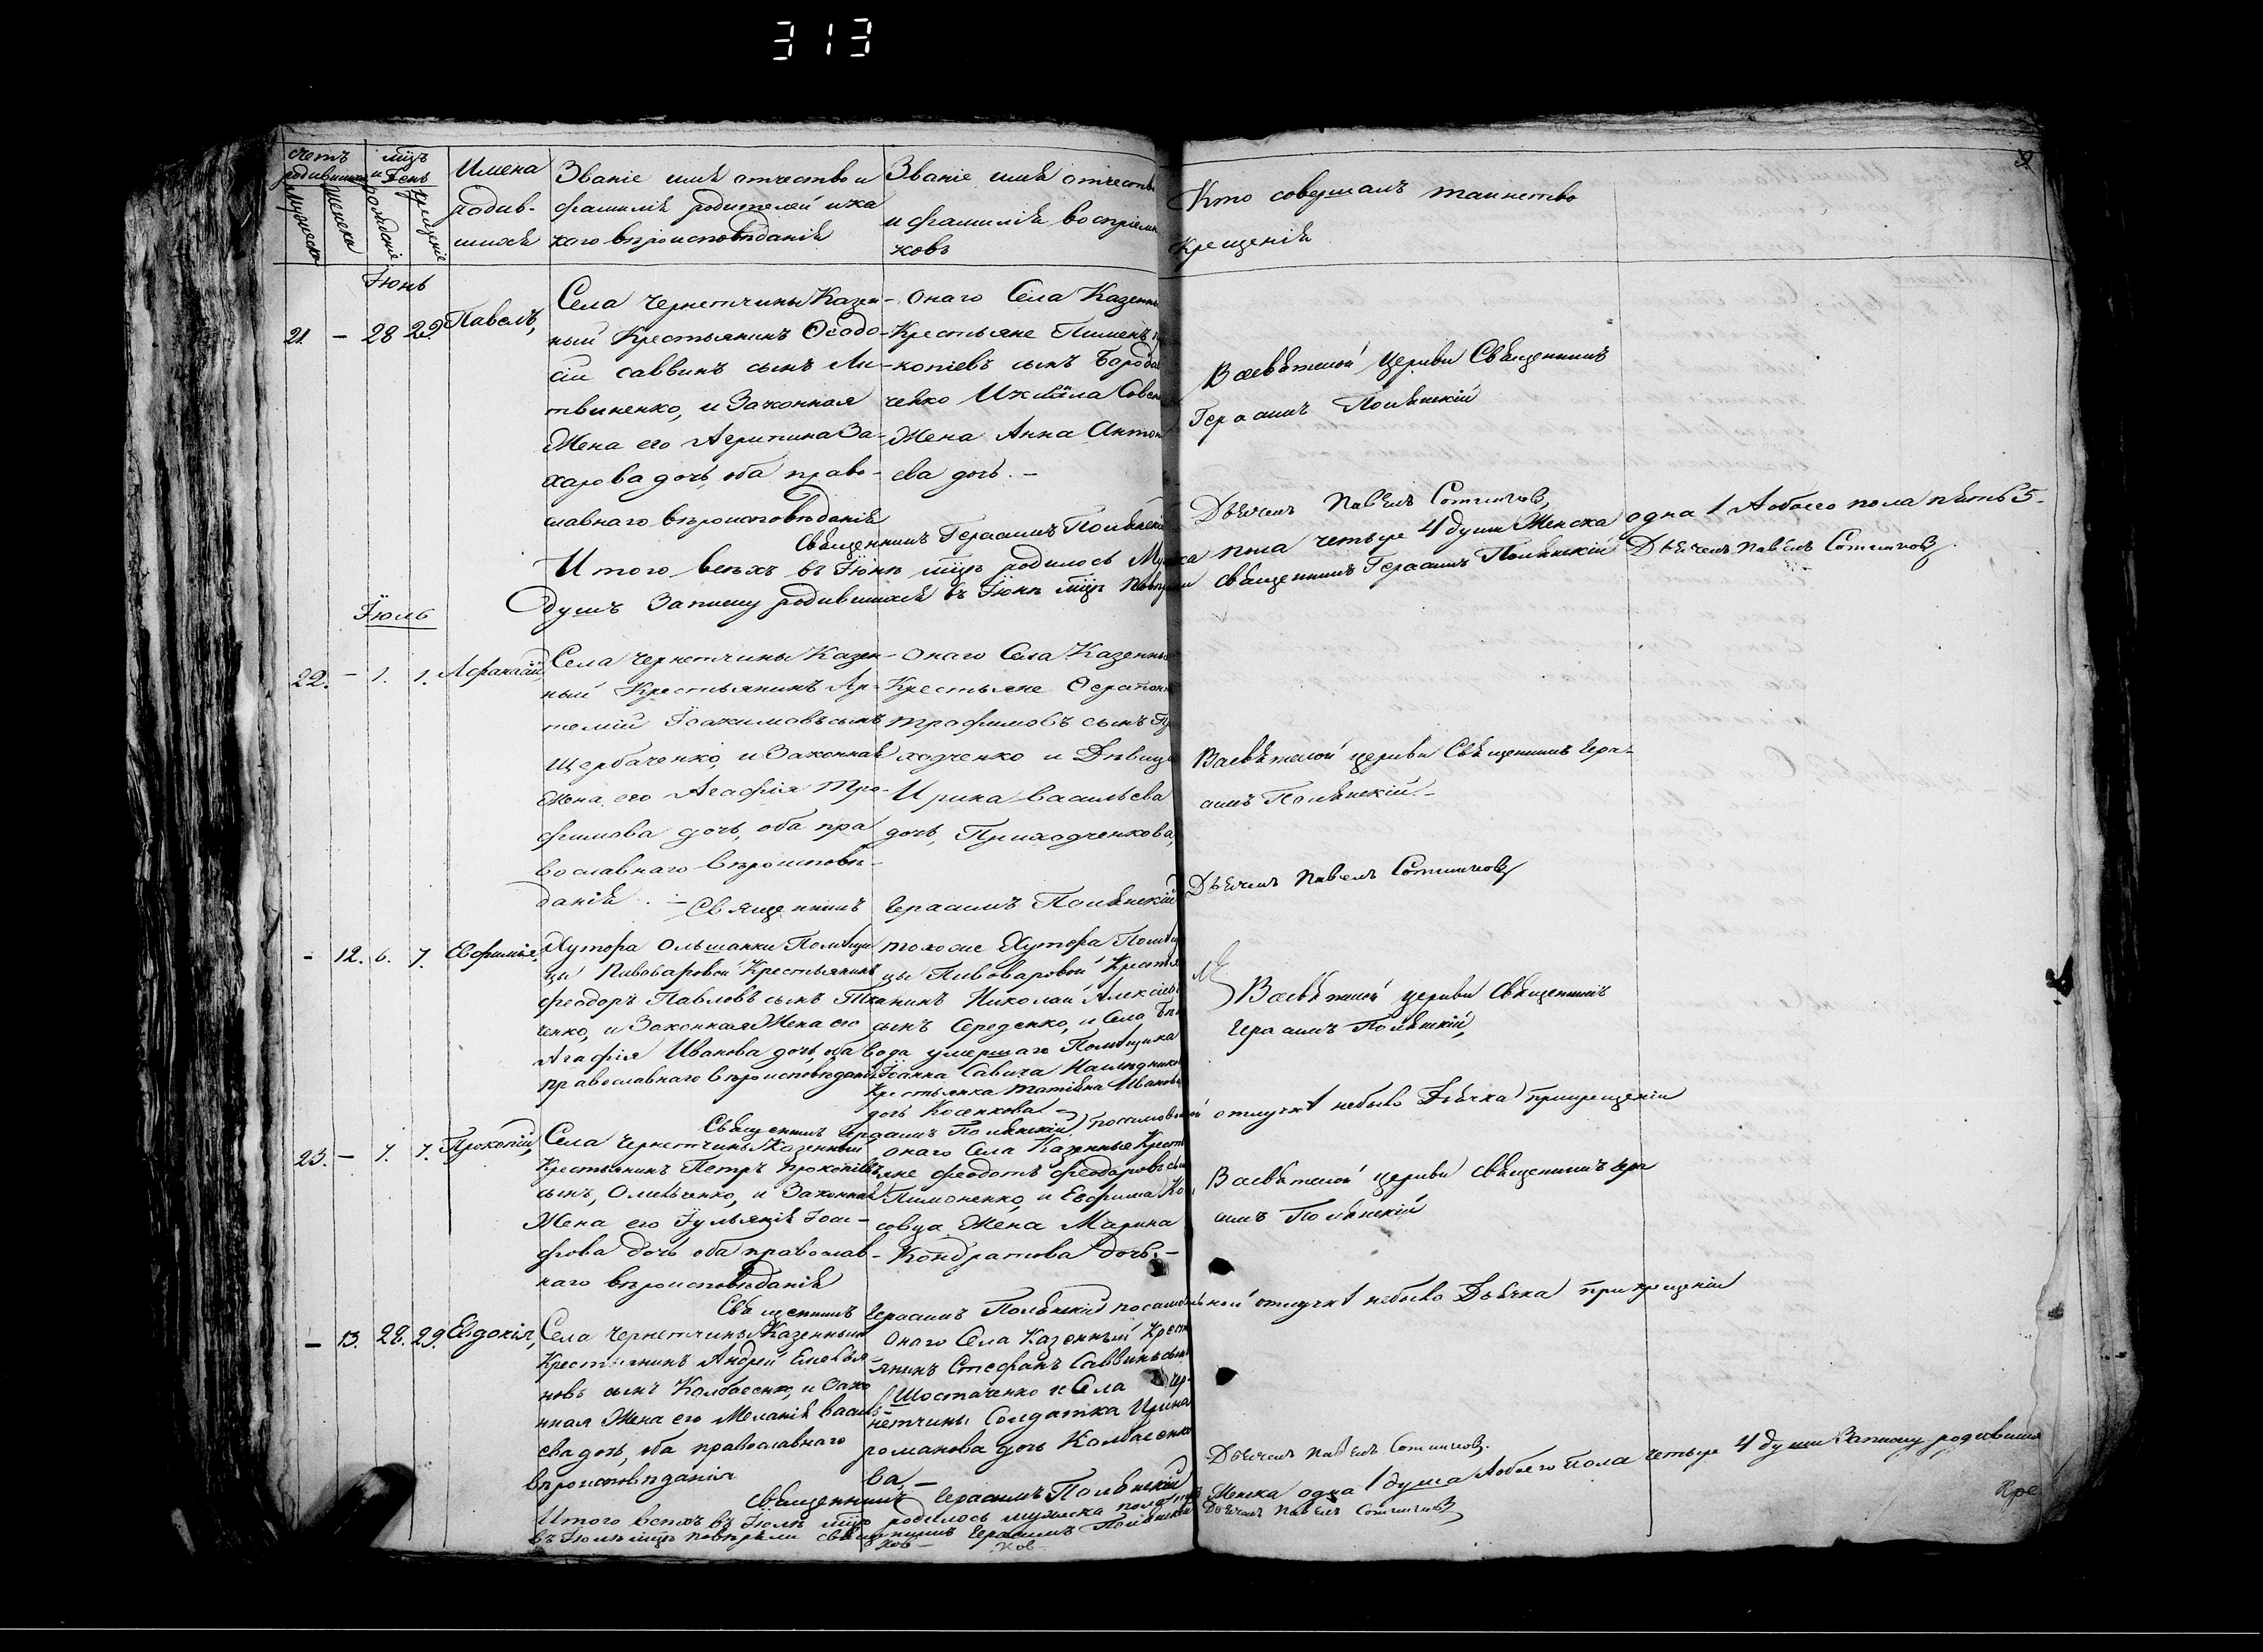 313
счетъ родившихся
мужеска
женска
мцъ и день
рожденіе
крещеніе
Имена родив-
шихся
Званіе имя отчество и
фамилія родителей и ка
кого вѣроисповѣданія
Званіе имя отчество
и фамилія воспріемни
ковъ
Кто совершалъ таинство
крещенія
Іюнь
21. – 28 29. Павелъ,
Села Чернетчины Казен-
ный Крестьянинъ Ѳеодо-
сій Саввинъ сынъ Ли-
твиненко, и Законная
Жена его Агрипина За-
харова дочь, оба право-
славнаго вѣроисповѣданія
Онаго Села Казенны
Крестьяне Пименъ
копіевъ сынъ Бород
ченко
Жена Анна Антон
ева дочь. –
Священникъ Герасимъ Полянскій
Всевятской Церкви Священникъ
Герасимъ Полянскій
Дьячекъ Павелъ
Итого всѣхъ въ Іюнѣ мцѣ родилось Мужеска пола четыре 4 души Женска одна 1 А обоего пола пять 5-
душъ Записку родившихся въ Іюнѣ мцѣ повѣряли Священникъ Герасимъ Полянскій Дьячекъ Павелъ
Іюль
22. – 1. 1. Афанасій,
Села Чернетчины Казен-
ный Крестьянинъ Ар-
темій Іоакимовъ сынъ
Щербаченко, и Законная
Жена его Агафія Тро-
фимова дочь, оба пра
вославнаго вѣроисповѣ-
данія. –
Онаго Села Казенные
Крестьяне
Трофимовъ сынъ
ходченко и Дѣвица
Ирина Васильева
дочь, Приходченкова,
Священникъ Герасимъ Полянскій
Всевятской церкви Священникъ Гера-
симъ Полянскій –
Дьячекъ Павелъ
– 12. 6. 7. Евфимія,
Хутора Ольшанки Помѣщи
цы Пивоваровой Крестьянинъ
Феодоръ Павловъ сынъ Тка
ченко, и Законная Жена его
Агафія Иванова дочь, оба
православнаго вѣроисповѣданія
того же Хутора Помѣщи
цы Пивоваровой Крестья
нинъ Николай Алексіев
сынъ Середенко, и Села Бѣ
вода умершаго Помѣщика
Іоанна Савича Наслѣднико
Крестьянка Татіяна Иванова
дочь Косенкова –
Всевятской церкви Священникъ
Герасимъ Полянскій,
Священникъ Герасимъ Полянскій по самовольной отлучкѣ небыло Дьячка при крещеніи
23. – 7. 7. Прокопій,
Села Чернетчины Казенный
Крестьянинъ Петръ Прокопіевъ
сынъ, Омельченко, и Законная
Жена его Іульянія Іоси-
фова дочь оба православ-
наго вѣроисповѣданія
онаго Села Казенные Кресть
яне Феодотъ Феодоровъ сынъ
Пимоненко, и Евфима Ко
совца Жена Марина
Кондратова дочь. –
Всевятской церкви Священникъ Гера
симъ Полянскій
Священникъ Герасимъ Полянскій по самовольной отлучкѣ небыло Дьячка при крещеніи
– 13. 28. 29. Евдокія,
Села Чернетчины Казенный
Крестьянинъ Андрей Емелья
новъ сынъ Колбасенко, и Зако
нная Жена его Меланія Василь-
ева дочь, оба православнаго
вѣроисповѣданія
Онаго Села Казенный Кресть
янинъ Стефанъ Саввинъ сынъ
Шостаченко и Села Чер-
нетчины Солдатка Ирина
Романова дочь Колбасенко
ва, –
Священникъ Герасимъ Полянскій
Дьячекъ Павелъ
Итого всѣхъ въ Іюлѣ мцѣ родилось мужеска пола три Женска одна 1 душа А обоего пола четыре 4 души Записку родившихся
въ Іюлѣ мцѣ повѣряли Священникъ Герасимъ Полянскій Дьячекъ Павелъ